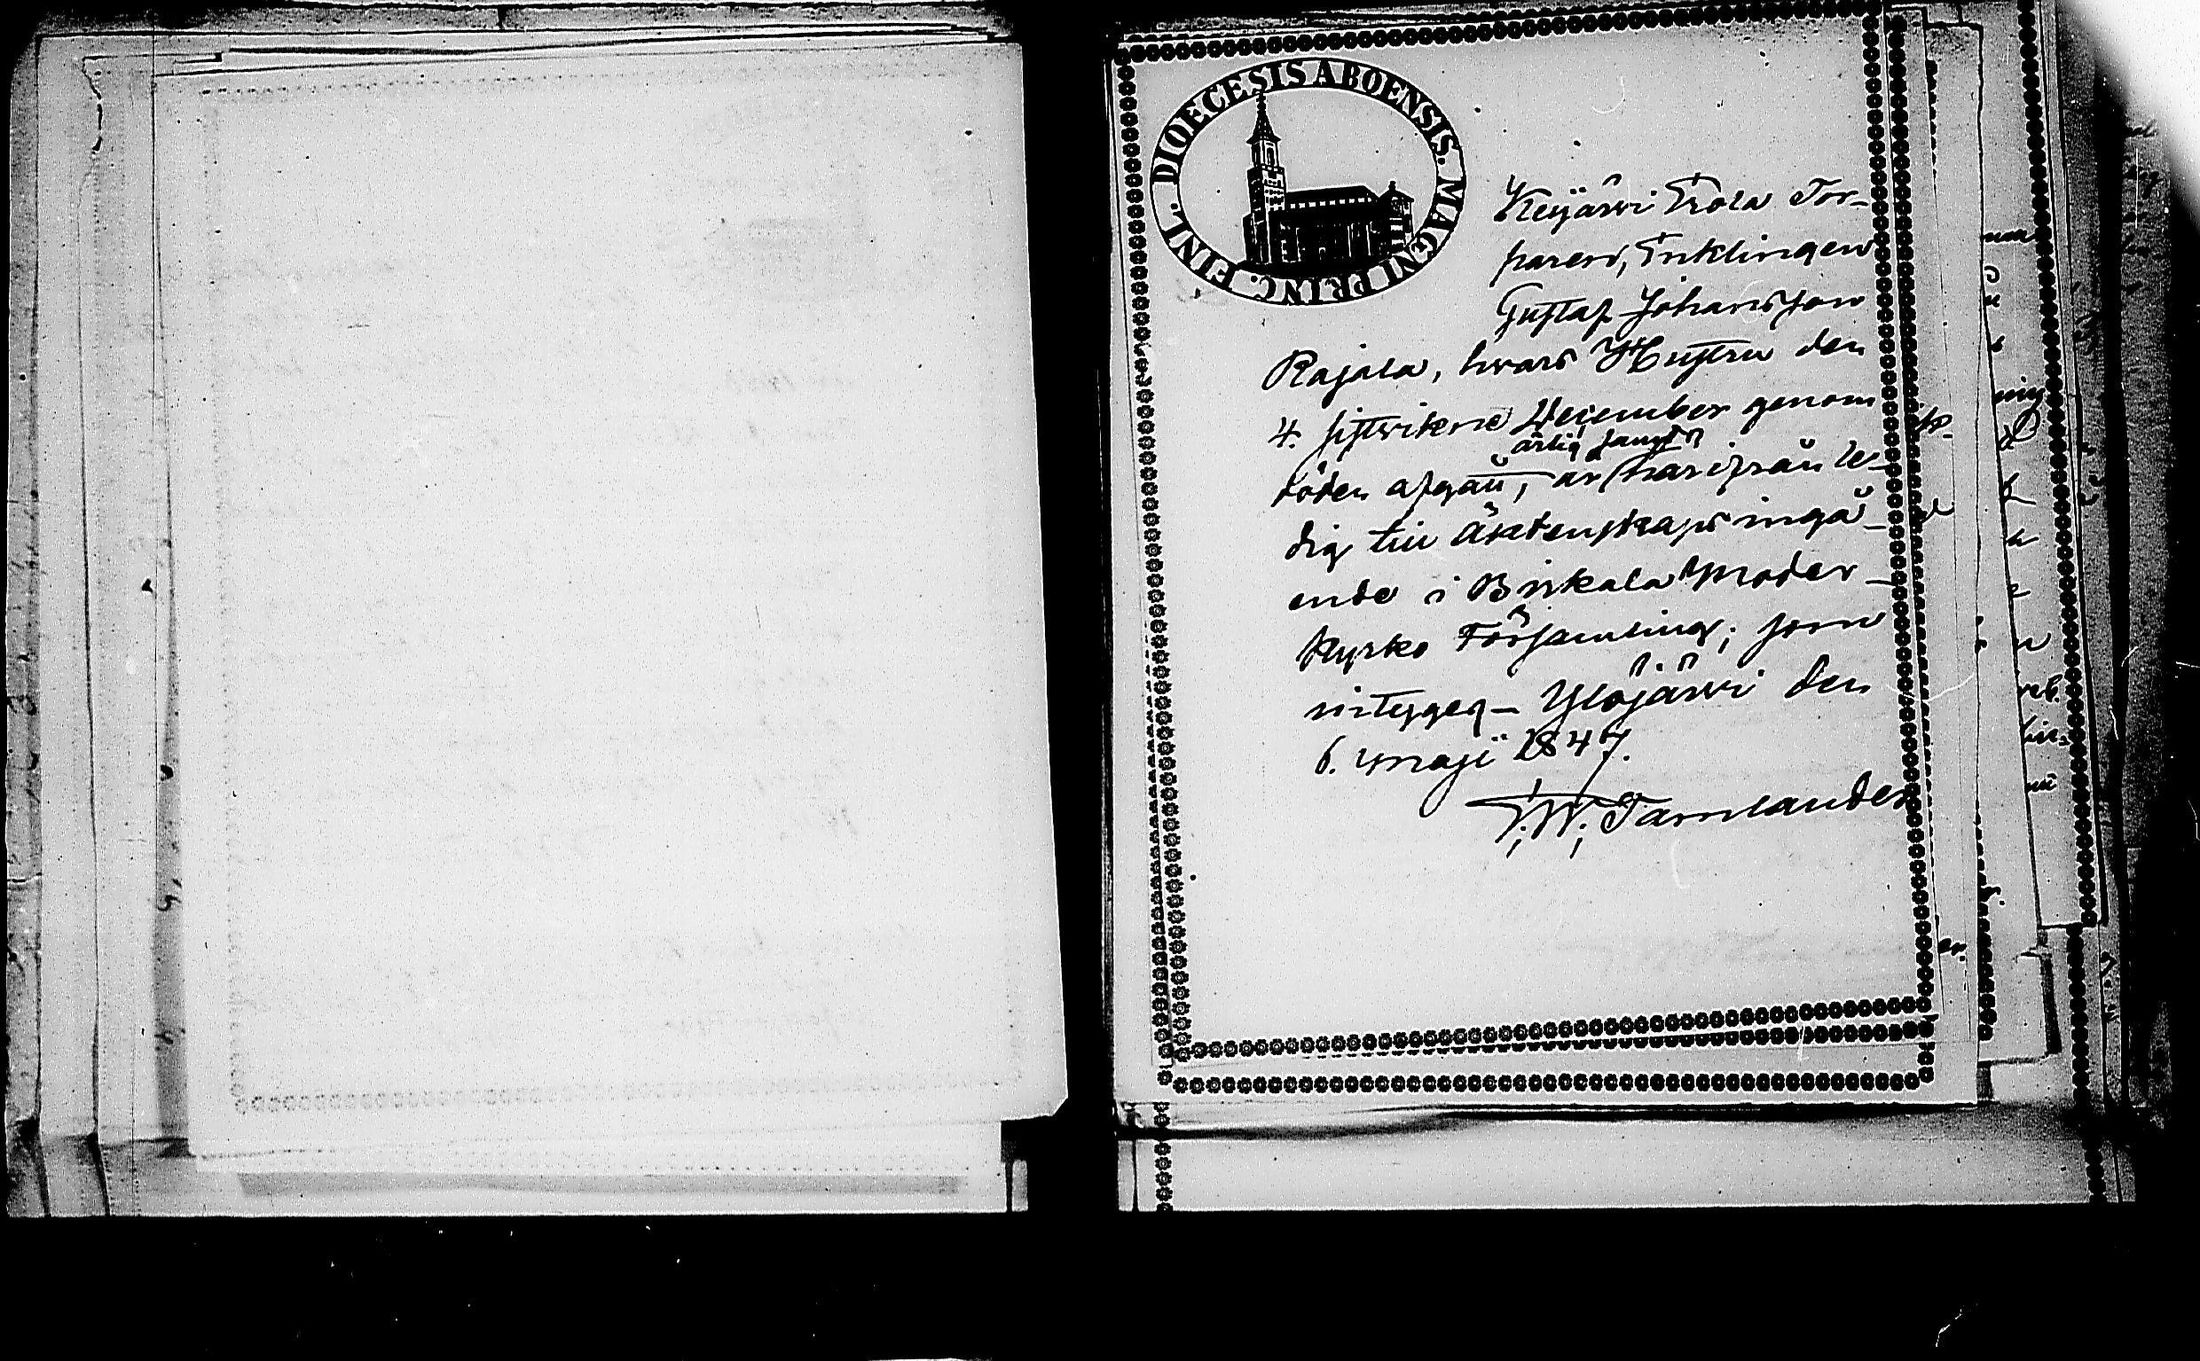 DIOECESIS ABOENSIS. MAGNI PRINC. FINL.
Keijärvi Trola Tor-
paren, Enklingen
Gustaf Johansson
Rajala, hvars Hustru den
4. sistvikne December genom
ärlig
döden afgått, är härifrån le-
dig till Äktenskaps ingå-
ende i Birkala Moder-
kyrko Församling; som
intygar Ylöjärvi den
6. Maji 1847.
Tamlander